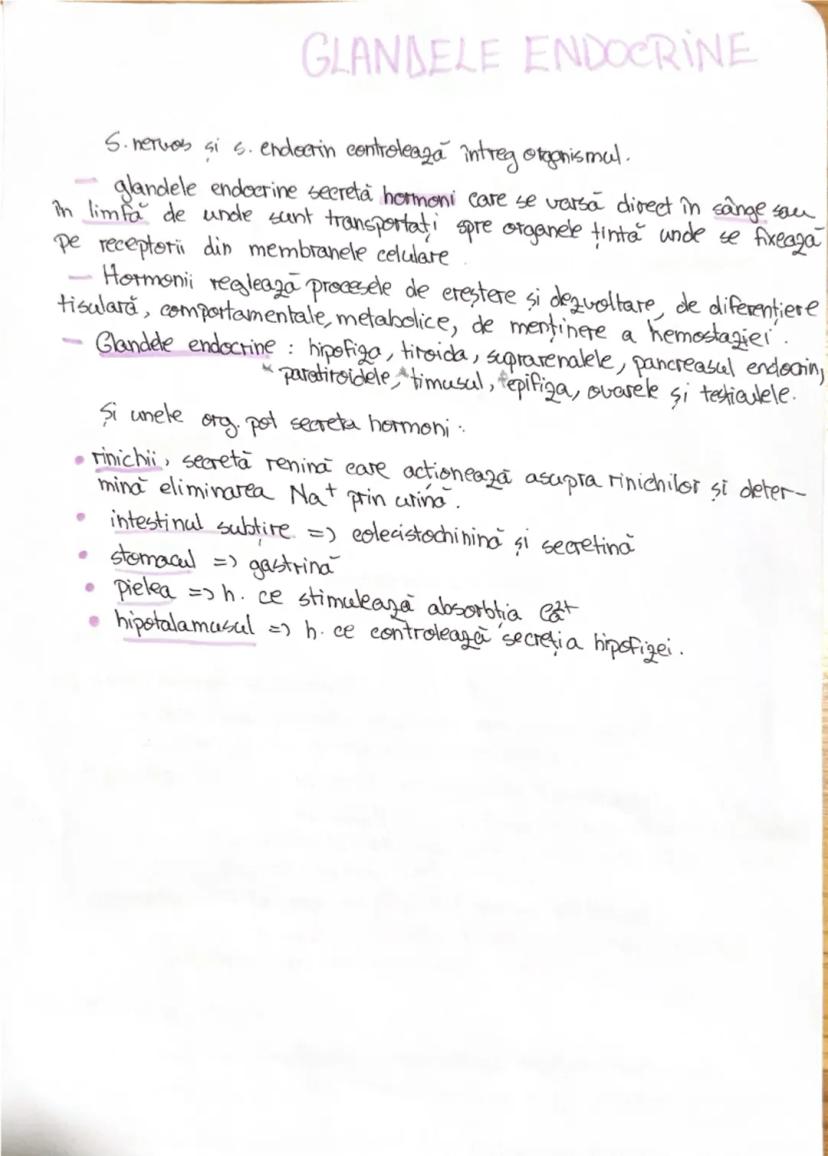 GLANDELE ENDOCRINE
S. nervos și s. endocrin controlează întreg organismul.
— glandele endocrine secretă hormoni care se varsă direct în sânge sau
în limfă de unde sunt transportați spre organele țintă unde se fixează
pe receptorii din membranele celulare
— Hormonii reglează procesele de creștere și dezvoltare, de diferențiere
tisulară, comportamentale, metabolice, de menținere a hemostaziei.
— Glandele endocrine : hipofiza, tiroida, suprarenalele, pancreasul endocrin,
paratiroidele, timusul, epifiza, ovarele și testiculele.
Și unele org. pot secreta hormoni :
• rinichii, secretă renină care acționează asupra rinichilor și deter-
mină eliminarea Na+ prin urină.
• intestinul subțire => colecistochinină și secretină
• stomacul => gastrină
• pielea => h. ce stimulează absorbția Ca2+
• hipotalamusul => h. ce controlează secreția hipofizei.